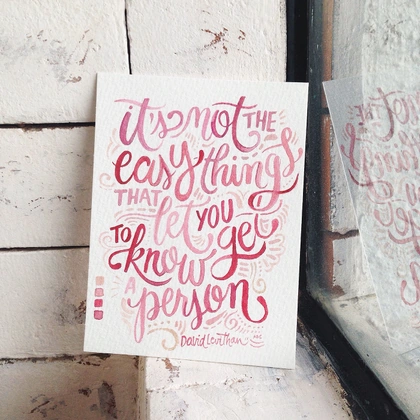 it's not THE
easy things
THAT let YOU
TO get
know
A person
David Levithan